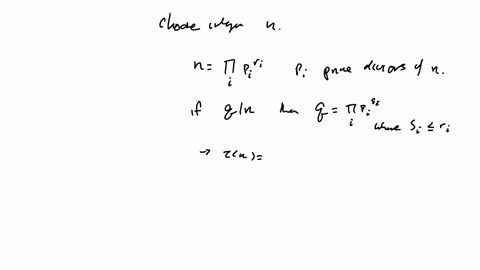 Choose integer n.
n = ∏_i p_i^{r_i}  p_i prime divisors of n.
if q|n then q = ∏_i p_i^{s_i}
where s_i ≤ r_i
→ τ(n) =